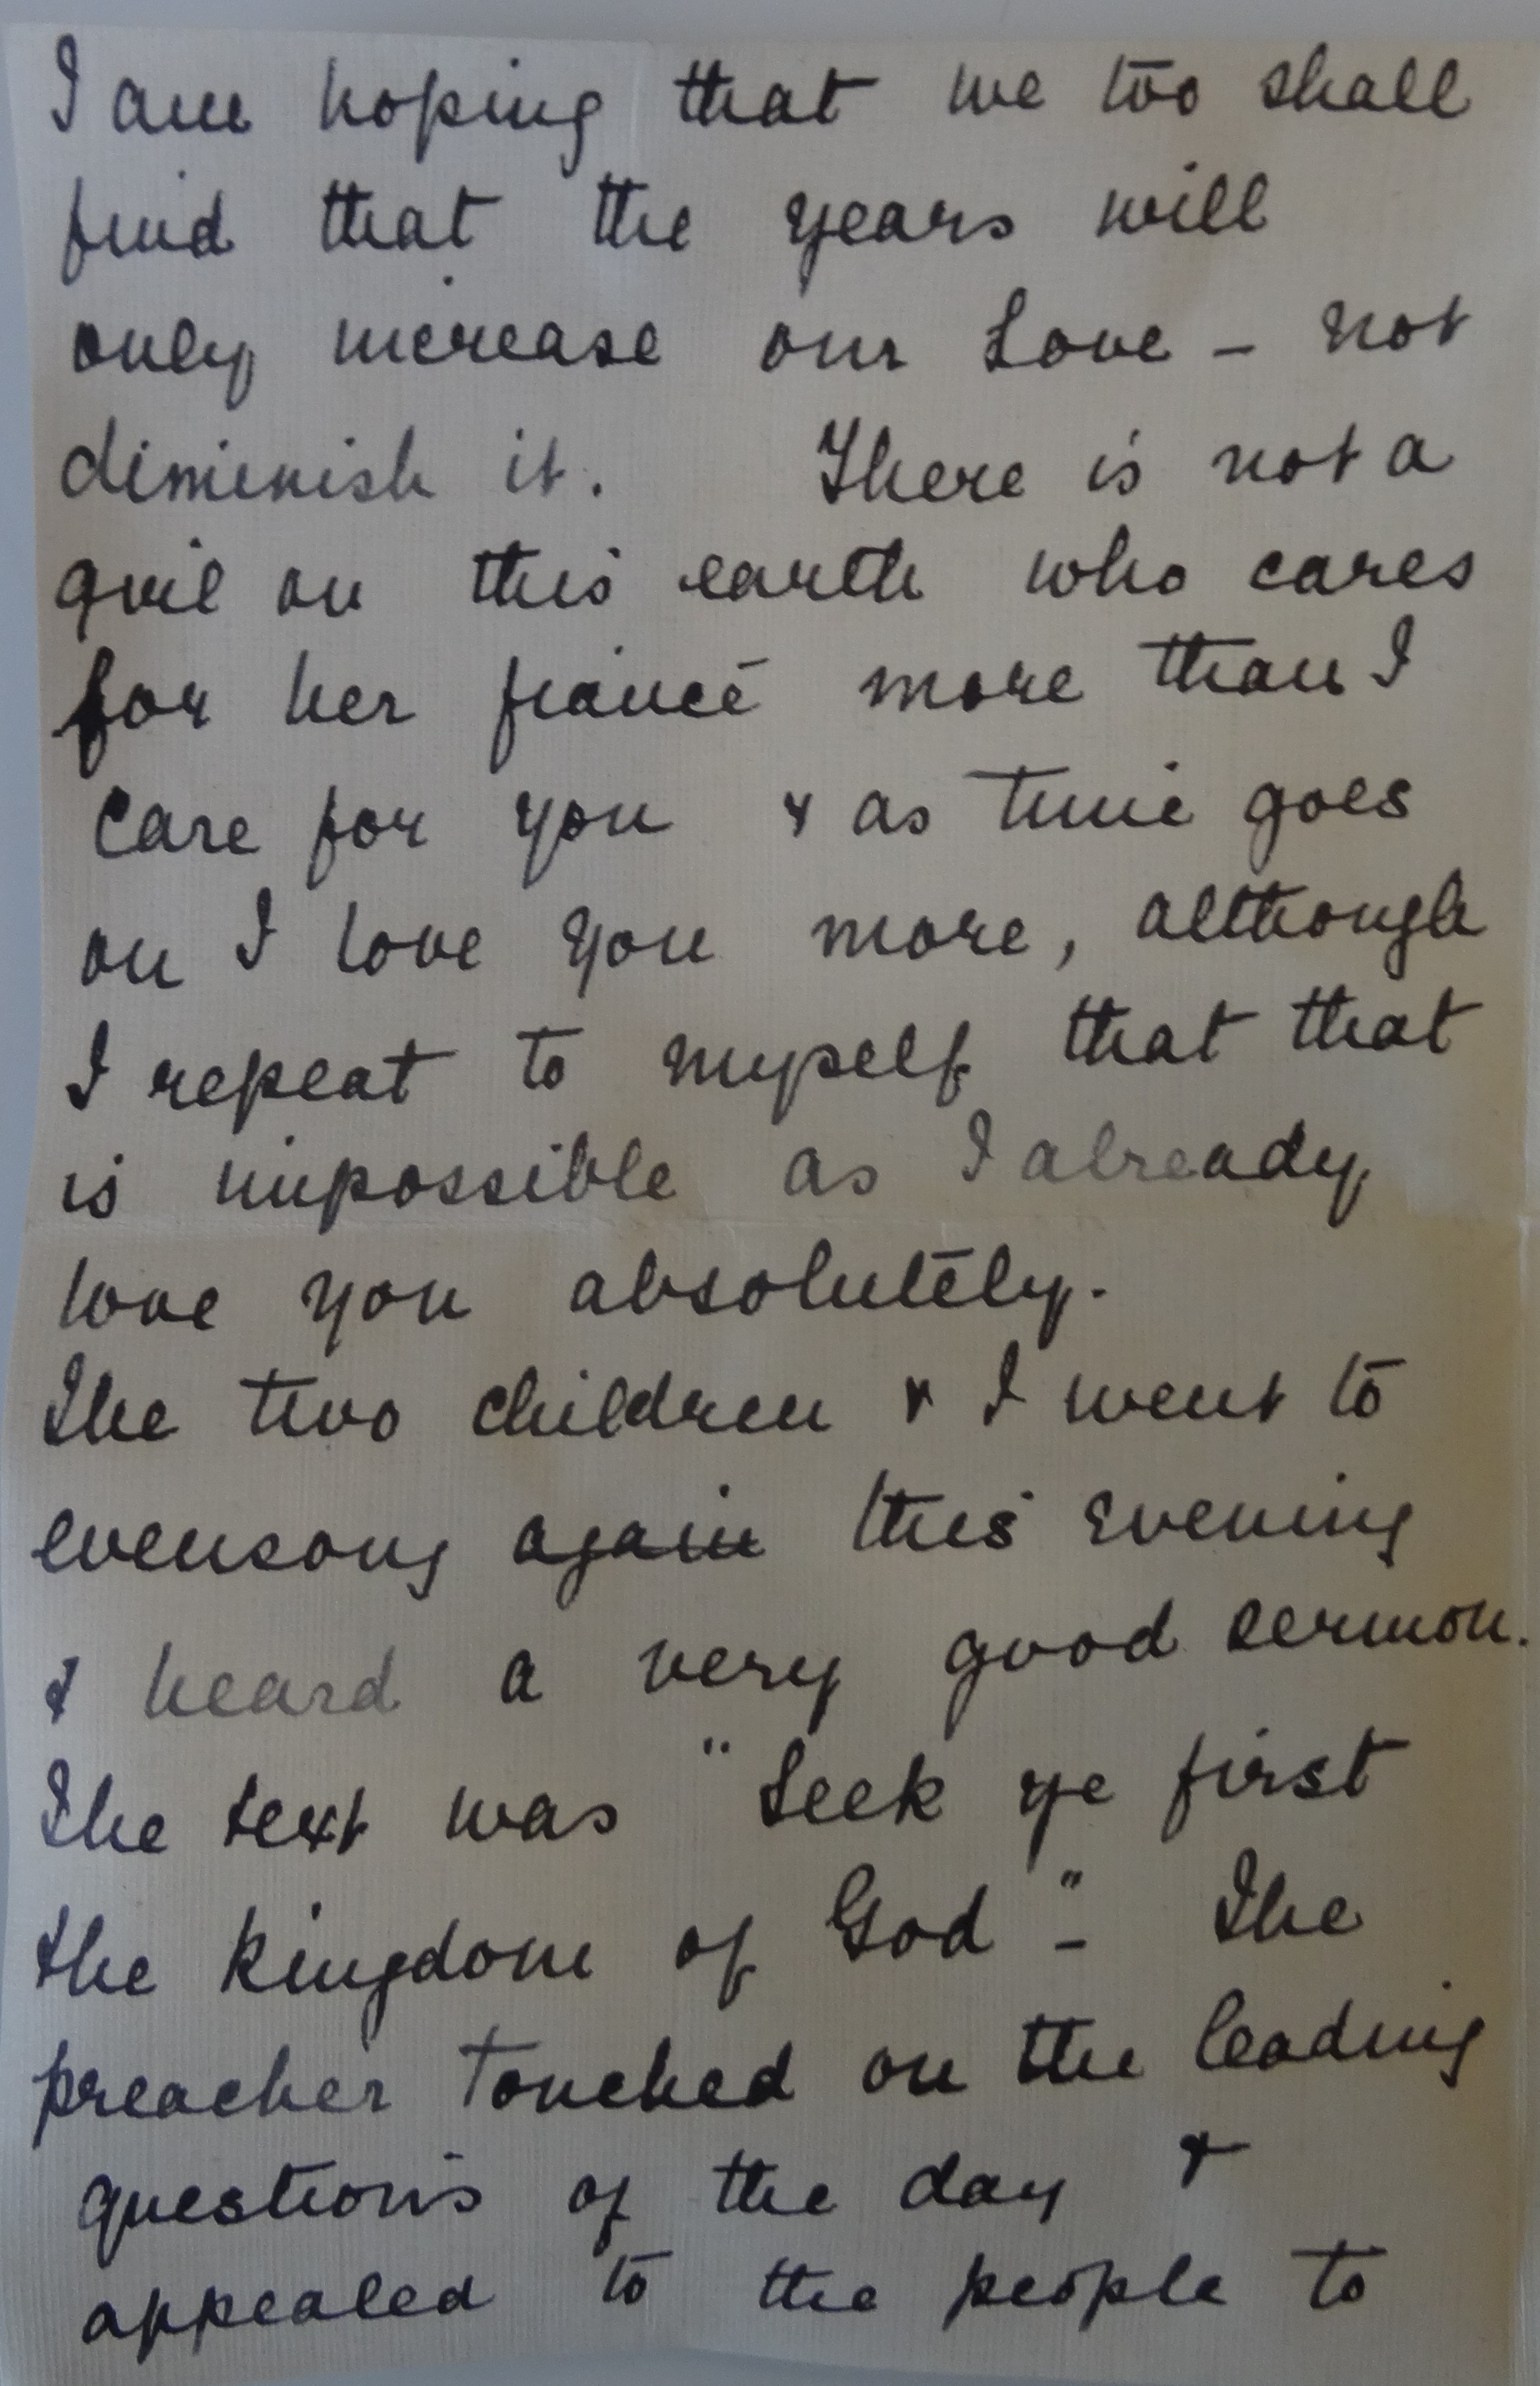 I am hoping that we too shall
find that the years will
only increase our Love – not
diminish it. There is not a
girl on this earth who cares
for her fiancé more than I
care for you & as time goes
on I love you more, although
I repeat to myself that that
is impossible as I already
love you absolutely.
The two children & I went to
evensong again this evening
& heard a very good sermon.
The text was "Seek ye first
the kingdom of God" – The
preacher touched on the leading
questions of the day &
appealed to the people to